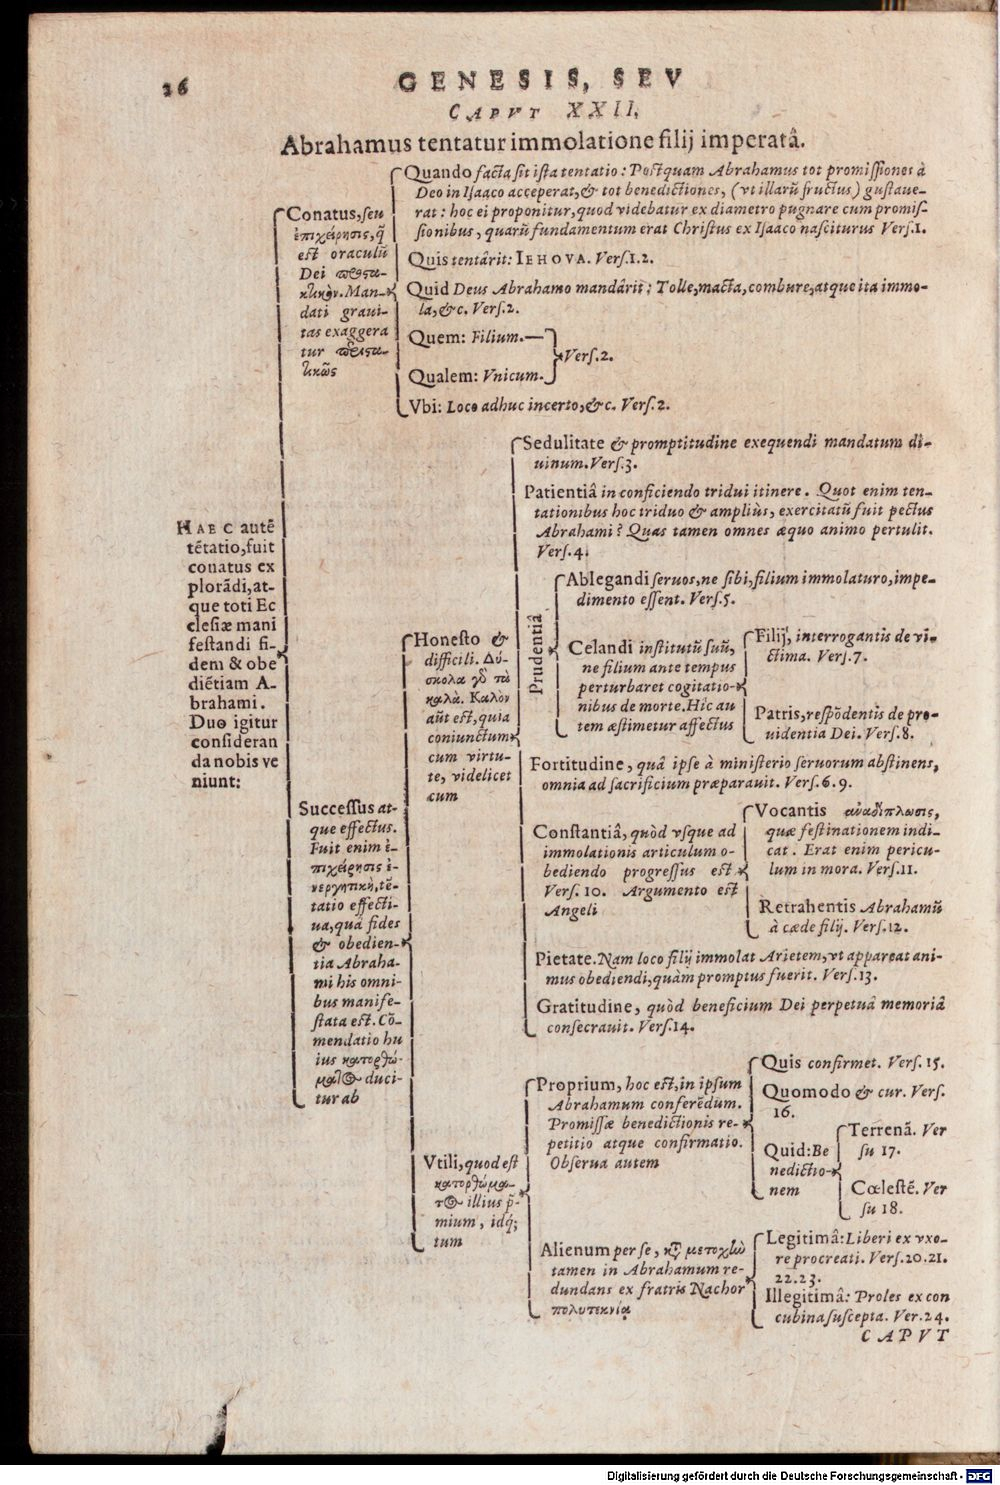 26
GENESIS, SEV
CAPVT XXII.
Abrahamus tentatur immolatione filij imperatâ.
HAEC autē
tētatio, fuit
conatus ex
plorādi, at-
que toti Ec
clesiæ mani
festandi fi-
dem & obe
diētiam A-
brahami.
Duo igitur
consideran
da nobis ve
niunt:
Conatus, seu
ἐπιχείρησις, q̄
est oraculū
Dei προστα-
κτικὸν. Man-
dati graui-
tas exaggera
tur
Quando facta sit ista tentatio: Postquam Abrahamus tot promissiones à
Deo in Isaaco acceperat, & tot benedictiones, (vt illarū fructus) gustaue-
rat: hoc ei proponitur, quod videbatur ex diametro pugnare cum promis-
sionibus, quarū fundamentum erat Christus ex Isaaco nasciturus Vers.1.
Quis tentârit: IEHOVA. Vers.1.2.
Quid Deus Abrahamo mandârit: Tolle, macta, combure, atque ita immo-
la, &c. Vers.2.
Quem: Filium.—
Vers.2.
Qualem: Vnicum.
Vbi: Loco adhuc incerto, &c. Vers.2.
Successus at-
que effectus.
Fuit enim ἐ-
πιχείρησις ἐ-
νεργητικὴ, tē-
tatio effecti-
ua, quâ fides
& obedien-
tia Abraha-
mi his omni-
bus manife-
stata est. Cō-
mendatio hu
ius κατορθώ-
ματος duci-
tur ab
Honesto &
difficili. Δύ-
σκολα γὸ τὰ
καλὰ. Καλὸν
aūt est, quia
coniunctum
cum virtu-
te, videlicet
cum
Sedulitate & promptitudine exequendi mandatum di-
uinum. Vers.3.
Patientiâ in conficiendo tridui itinere. Quot enim ten-
tationibus hoc triduo & ampliùs, exercitatū fuit pectus
Abrahami? Quas tamen omnes æquo animo pertulit.
Vers.4.
Prudentiâ
Ablegandi seruos, ne sibi, filium immolaturo, impe-
dimento essent. Vers.5.
Celandi institutū suū,
ne filium ante tempus
perturbaret cogitatio-
nibus de morte. Hîc au
tem æstimetur affectus
Filij, interrogantis de vi-
ctima. Vers.7.
Patris, respōdentis de pro-
uidentia Dei. Vers.8.
Fortitudine, quâ ipse à ministerio seruorum abstinens,
omnia ad sacrificium præparauit. Vers.6.9.
Constantiâ, quòd vsque ad
immolationis articulum o-
bediendo progressus est
Vers. 10. Argumento est
Angeli
Vocantis ἀναδίπλωσις,
quæ festinationem indi-
cat. Erat enim pericu-
lum in mora. Vers.11.
Retrahentis Abrahamū
à cæde filij. Vers.12.
Pietate. Nam loco filij immolat Arietem, vt appareat ani-
mus obediendi, quàm promptus fuerit. Vers.13.
Gratitudine, quòd beneficium Dei perpetuâ memoriâ
consecrauit. Vers.14.
Vtili, quod est
κατορθώμα-
τος illius p̄-
mium, idq́;
tum
Proprium, hoc est, in ipsum
Abrahamum conferēdum.
Promissæ benedictionis re-
petitio atque confirmatio.
Obserua autem
Quis confirmet. Vers. 15.
Quomodo & cur. Vers.
16.
Quid: Be
nedictio-
nem
Terrenā. Ver
su 17.
Cœlestē. Ver
su 18.
Alienum per se, μετοχικῶ
tamen in Abrahamum re-
dundans ex fratris Nachor
πολυτεκνίᾳ
Legitimâ: Liberi ex vxo-
re procreati. Vers.20.21.
22.23.
Illegitimâ: Proles ex con
cubina suscepta. Ver.24.
CAPVT
Digitalisierung gefördert durch die Deutsche Forschungsgemeinschaft - DFG